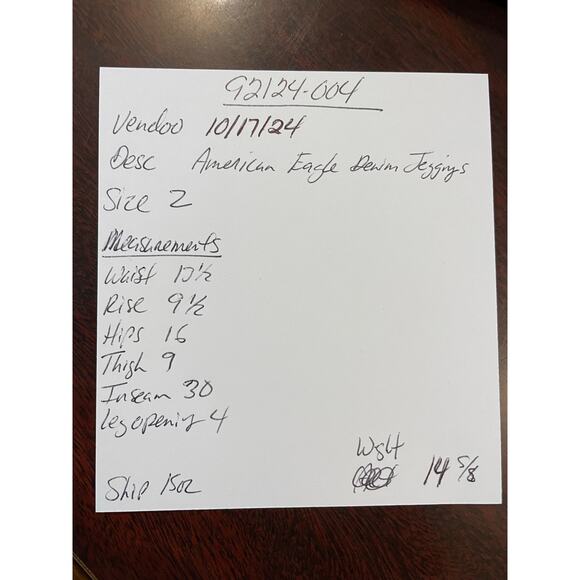 92124-004
Vendoo 10/17/24
Desc American Eagle Denim Jeggings
Size 2
Measurements
Waist 13 1/2
Rise 9 1/2
Hips 16
Thigh 9
Inseam 30
Leg opening 4
Wght
Ship 15oz 14 5/8